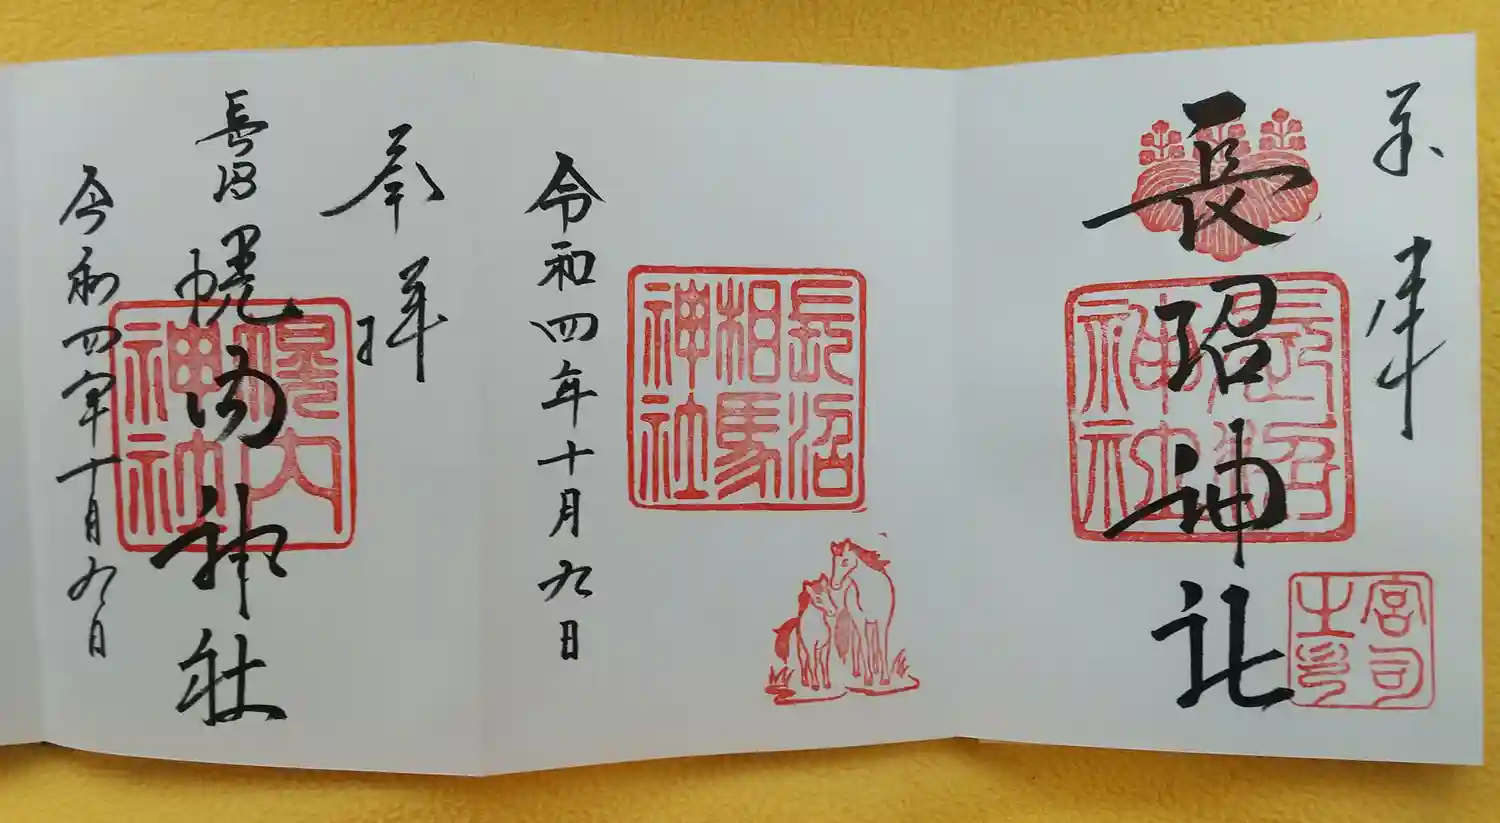 奉拝
長沼神社
長沼神社
宮司之印
長沼
相馬
神社
令和四年十月九日
奉拝
長沼
幌内神社
幌内
神社
令和四年十月九日